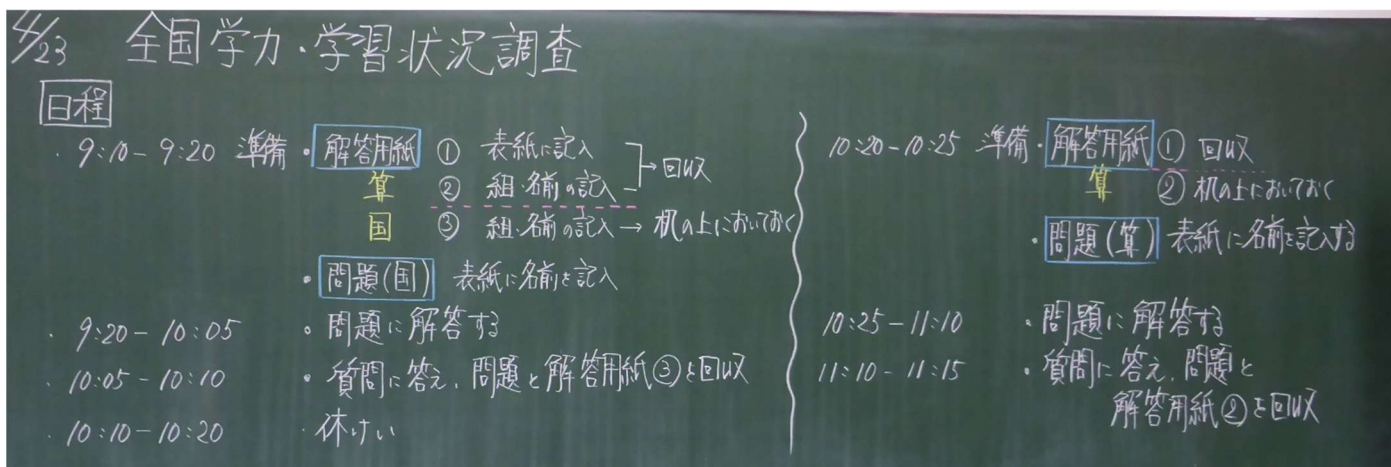 4/23 全国学力・学習状況調査
日程
・9:10-9:20 準備・解答用紙 ① 表紙に記入
算 ② 組・名前の記入 →回収
国 ③ 組・名前の記入 → 机の上においておく
・問題(国) 表紙に名前を記入
・9:20-10:05 ・問題に解答する
・10:05-10:10 ・質問に答え、問題と解答用紙③を回収
・10:10-10:20 ・休けい
10:20-10:25 準備・解答用紙 ① 回収
算 ② 机の上においておく
・問題(算) 表紙に名前を記入する
10:25-11:10 ・問題に解答する
11:10-11:15 ・質問に答え、問題と
解答用紙②を回収